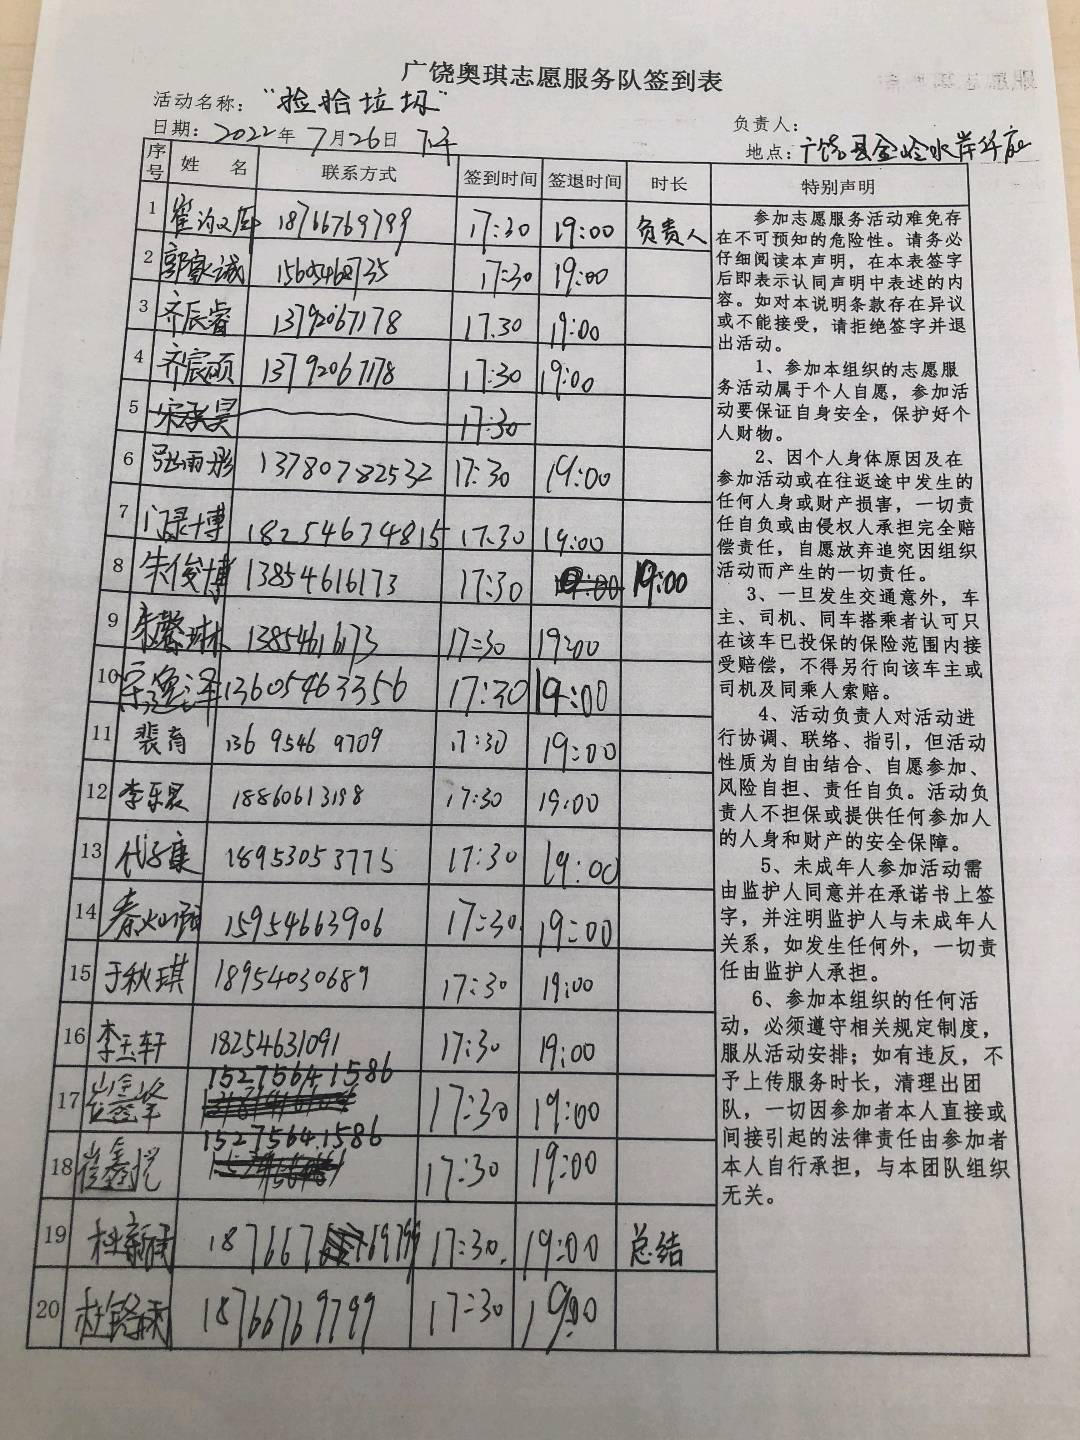 广饶奥琪志愿服务队签到表
活动名称：“捡拾垃圾”
负责人：
日期：2022年7月26日 下午
地点：广饶县金岭水岸
序号 姓 名 联系方式 签到时间 签退时间 时长 特别声明
1 18766769799 17:30 19:00 负责人
2 郭家诚 15605468735 17:30 19:00
3 齐辰睿 13792067178 17.30 19:00
4 齐宸硕 13792067178 17:30 19:00
5 宋承昊 17:30
6 张雨彤 13780782532 17:30 19:00
7 18254674815 17:30 19:00
8 朱俊博 13854616173 17:30 19:00
9 朱馨琳 13854616173 17:30 19:00
10 宋逸泽 13605463356 17:30 19:00
11 裴育 136 9546 9709 17:30 19:00
12 李乐 18860613198 17:30 19:00
13 代子康 18953053775 17:30 19:00
14 秦 15954663906 17:30 19:00
15 于秋琪 18954030689 17:30 19:00
16 李玉轩 18254631091 17:30 19:00
17 崔鑫 15275641586 17:30 19:00
18 崔鑫悦 15275641586 17:30 19:00
19 杜 18766769799 17:30 19:00 总结
20 杜 18766769799 17:30 19:00
参加志愿服务活动难免存
在不可预知的危险性。请务必
仔细阅读本声明，在本表签字
后即表示认同声明中表述的内
容。如对本说明条款存在异议
或不能接受，请拒绝签字并退
出活动。
1、参加本组织的志愿服
务活动属于个人自愿，参加活
动要保证自身安全，保护好个
人财物。
2、因个人身体原因及在
参加活动或在往返途中发生的
任何人身或财产损害，一切责
任自负或由侵权人承担完全赔
偿责任，自愿放弃追究因组织
活动而产生的一切责任。
3、一旦发生交通意外，车
主、司机、同车搭乘者认可只
在该车已投保的保险范围内接
受赔偿，不得另行向该车主或
司机及同乘人索赔。
4、活动负责人对活动进
行协调、联络、指引，但活动
性质为自由结合、自愿参加、
风险自担、责任自负。活动负
责人不担保或提供任何参加人
的人身和财产的安全保障。
5、未成年人参加活动需
由监护人同意并在承诺书上签
字，并注明监护人与未成年人
关系，如发生任何外，一切责
任由监护人承担。
6、参加本组织的任何活
动，必须遵守相关规定制度，
服从活动安排；如有违反，不
予上传服务时长，清理出团
队，一切因参加者本人直接或
间接引起的法律责任由参加者
本人自行承担，与本团队组织
无关。